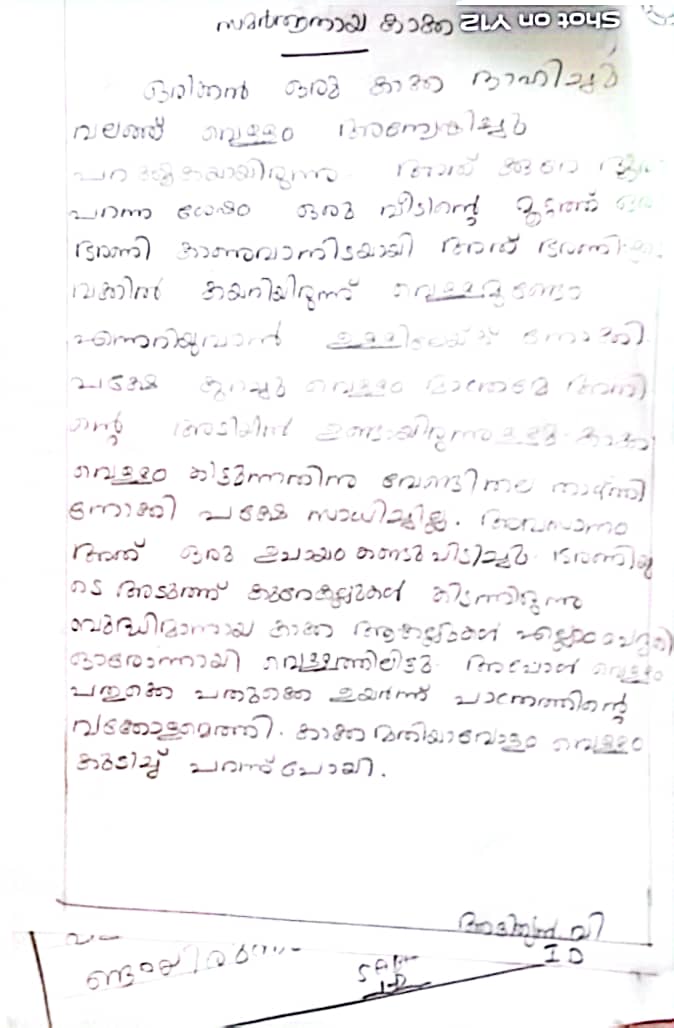 സമർത്ഥനായ കാക്ക
Shot on Y12
ഒരിക്കൽ ഒരു കാക്ക ദാഹിച്ചു
വലഞ്ഞ് വെള്ളം അന്വേഷിച്ചു
പറക്കുകയായിരുന്നു. അത് കുറെ
പറന്ന ശേഷം ഒരു വീടിന്റെ മുറ്റത്ത് ഒരു
ഭരണി കാണുവാനിടയായി അത് ഭരണിയുടെ
വക്കിൽ കയറിയിരുന്ന് വെള്ളമുണ്ടോ
എന്നറിയുവാൻ ഉള്ളിലേയ്ക്ക് നോക്കി.
പക്ഷേ കുറച്ചു വെള്ളം മാത്രമേ അതി
ന്റെ അടിയിൽ ഉണ്ടായിരുന്നുള്ളൂ. കാക്ക
വെള്ളം കിട്ടുന്നതിനു വേണ്ടി തല താഴ്ത്തി
നോക്കി പക്ഷേ സാധിച്ചില്ല. അവസാനം
അത് ഒരു ഉപായം കണ്ടുപിടിച്ചു. ഭരണിയു
ടെ അടുത്ത് കുറെകല്ലുകൾ കിടന്നിരുന്നു
ബുദ്ധിമാനായ കാക്ക ആകല്ലുകൾ എല്ലാം പെറുക്കി
ഓരോന്നായി വെള്ളത്തിലിട്ടു. അപ്പോൾ വെള്ളം
പതുക്കെ പതുക്കെ ഉയർന്ന് പാത്രത്തിന്റെ
വക്കോളമെത്തി. കാക്ക മതിയാവോളം വെള്ളം
കുടിച്ച് പറന്ന് പോയി.
വി
I D
ണ്ടായിരു
I-D